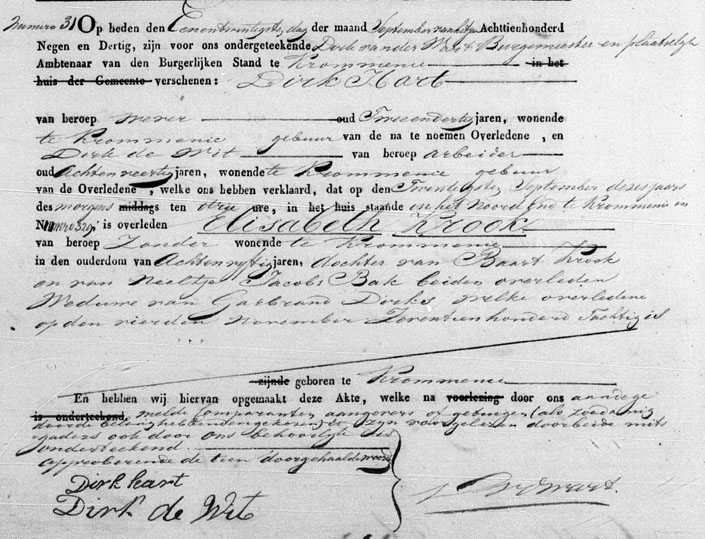 Numero 31 Op heden den Eenentwintigste dag der maand September van het jaar Achttienhonderd
Negen en Dertig, zijn voor ons ondergeteekende Dirk van der Burgemeester en plaatselijk
Ambtenaar van den Burgerlijken Stand te Krommenie in het
huis der Gemeente verschenen: Dirk Hart
van beroep wever oud Tweeendertig jaren, wonende
te Krommenie gebuur van de na te noemen Overledene, en
Dirk de Wit van beroep Arbeider
oud Achtenveertig jaren, wonende te Krommenie gebuur
van de Overledene, welke ons hebben verklaard, dat op den Twintigste September dezes jaars
des morgens middags ten drie ure, in het huis staande in het Noord End te Krommenie in
Numero 320, is overleden Elisabeth Krook
van beroep Zonder wonende te Krommenie
in den ouderdom van Achtenvyftig jaren, dochter van Baart Krook
en van Neeltje Jacobs Bak beiden overleden
Weduwe van Garbrand Dirks welke overledene
op den vierden November Zeventienhonderd Tachtig is
zijnde geboren te Krommenie
En hebben wij hiervan opgemaakt deze Akte, welke na voorlezing door ons
is onderteekend, melde Comparanten, aangevers of getuigen (als zoodanig
door de belanghebbenden gekozen) te zijn voorgelezen door beide mits
gaders ook door ons behoorlyk is
onderteekend
Approberende de tien doorgehaalde woorden
Dirk hart
Dirk de Wit